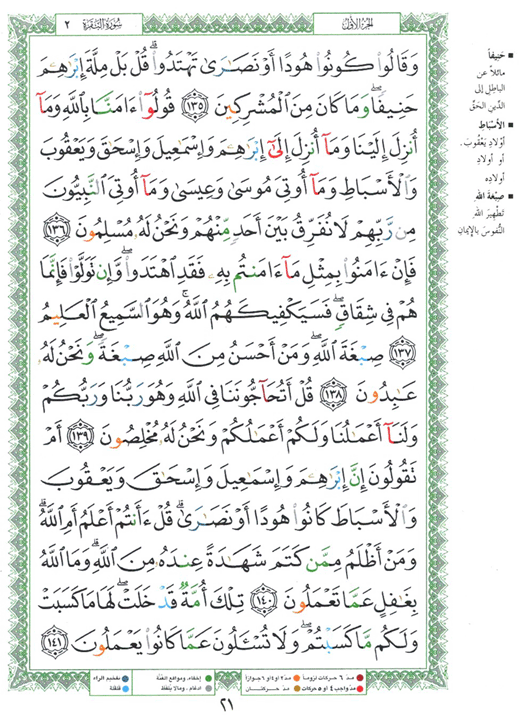 الجزء الأول
سورة البقرة ٢
وَقَالُوا۟ كُونُوا۟ هُودًا أَوْ نَصَٰرَىٰ تَهْتَدُوا۟ ۗ قُلْ بَلْ مِلَّةَ إِبْرَٰهِـۧمَ
حَنِيفًا ۖ وَمَا كَانَ مِنَ ٱلْمُشْرِكِينَ ١٣٥ قُولُوٓا۟ ءَامَنَّا بِٱللَّهِ وَمَآ
أُنزِلَ إِلَيْنَا وَمَآ أُنزِلَ إِلَىٰٓ إِبْرَٰهِـۧمَ وَإِسْمَٰعِيلَ وَإِسْحَٰقَ وَيَعْقُوبَ
وَٱلْأَسْبَاطِ وَمَآ أُوتِىَ مُوسَىٰ وَعِيسَىٰ وَمَآ أُوتِىَ ٱلنَّبِيُّونَ
مِن رَّبِّهِمْ لَا نُفَرِّقُ بَيْنَ أَحَدٍ مِّنْهُمْ وَنَحْنُ لَهُۥ مُسْلِمُونَ ١٣٦
فَإِنْ ءَامَنُوا۟ بِمِثْلِ مَآ ءَامَنتُم بِهِۦ فَقَدِ ٱهْتَدَوا۟ ۖ وَّإِن تَوَلَّوْا۟ فَإِنَّمَا
هُمْ فِى شِقَاقٍ ۖ فَسَيَكْفِيكَهُمُ ٱللَّهُ ۚ وَهُوَ ٱلسَّمِيعُ ٱلْعَلِيمُ
١٣٧ صِبْغَةَ ٱللَّهِ ۖ وَمَنْ أَحْسَنُ مِنَ ٱللَّهِ صِبْغَةً ۖ وَنَحْنُ لَهُۥ
عَٰبِدُونَ ١٣٨ قُلْ أَتُحَآجُّونَنَا فِى ٱللَّهِ وَهُوَ رَبُّنَا وَرَبُّكُمْ
وَلَنَآ أَعْمَٰلُنَا وَلَكُمْ أَعْمَٰلُكُمْ وَنَحْنُ لَهُۥ مُخْلِصُونَ ١٣٩ أَمْ
نَقُولُونَ إِنَّ إِبْرَٰهِـۧمَ وَإِسْمَٰعِيلَ وَإِسْحَٰقَ وَيَعْقُوبَ
وَٱلْأَسْبَاطَ كَانُوا۟ هُودًا أَوْ نَصَٰرَىٰ ۗ قُلْ ءَأَنتُمْ أَعْلَمُ أَمِ ٱللَّهُ ۗ
وَمَنْ أَظْلَمُ مِمَّن كَتَمَ شَهَٰدَةً عِندَهُۥ مِنَ ٱللَّهِ ۗ وَمَا ٱللَّهُ
بِغَٰفِلٍ عَمَّا تَعْمَلُونَ ١٤٠ تِلْكَ أُمَّةٌ قَدْ خَلَتْ ۖ لَهَا مَا كَسَبَتْ
وَلَكُم مَّا كَسَبْتُمْ ۖ وَلَا تُسْـَٔلُونَ عَمَّا كَانُوا۟ يَعْمَلُونَ ١٤١
حَنِيفاً
مائلاً عن
الباطِلِ إلى
الدِّينِ الحَقِّ
الأَسْبَاطِ
أوْلادِ يَعْقُوبَ.
أو أولادِ
أولادِه
صِبْغَةَ اللهِ
تَطْهِيرَ اللهِ
النُّفوسَ بالإيمانِ
مدّ ٦ حركات لزوماً
مدّ ٢ أو ٤ أو ٦ جوازاً
إخفاء، ومواقع الغنّة
تفخيم الراء
مدّ واجب ٤ أو ٥ حركات
مدّ حركتان
ادغام، وما لا يلفظ
قلقلة
٢١